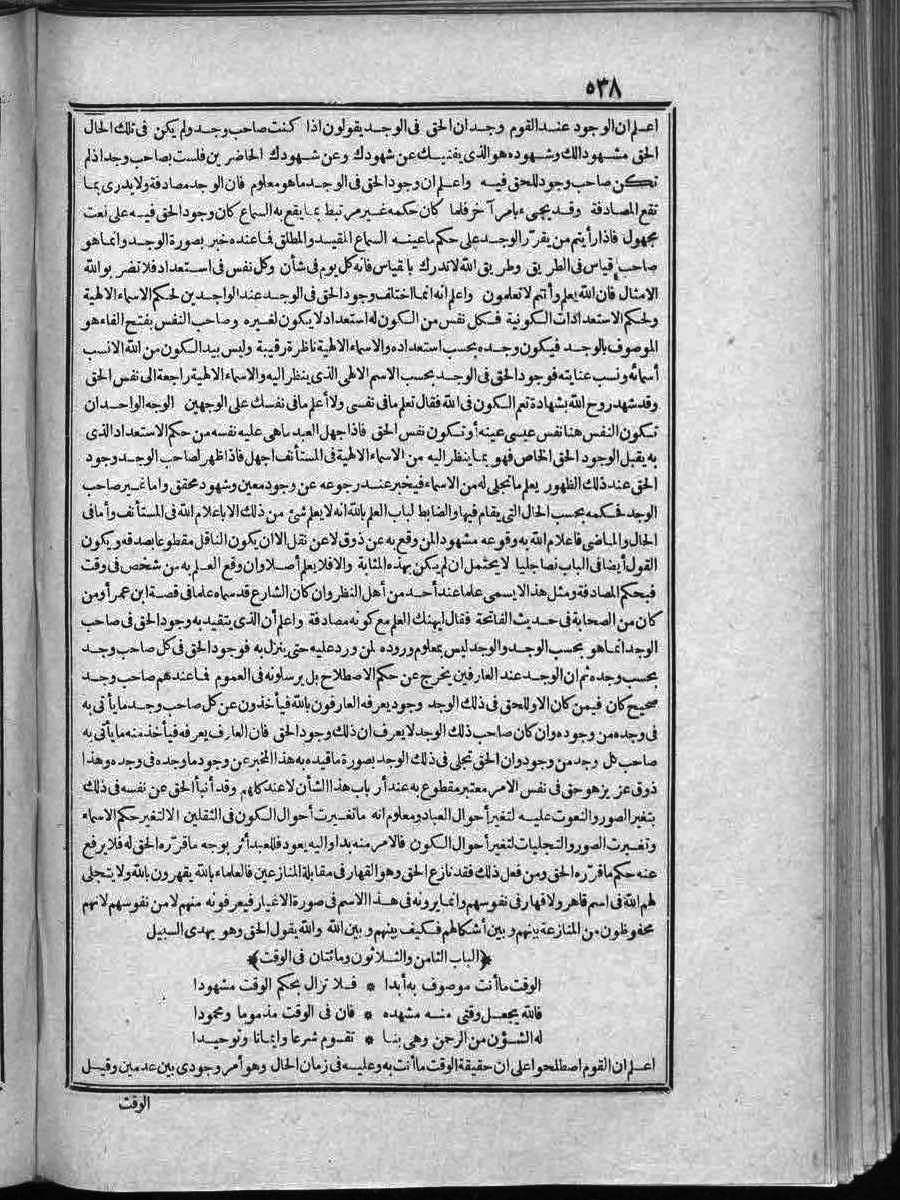 ٥٣٨
اعلم ان الوجود عند القوم وجدان الحق فى الوجد يقولون اذا كنت صاحب وجد ولم يكن فى تلك الحال
الحق مشهودا لك وشهوده هو الذى يفنيك عن شهودك وعن شهودك الحاضرين فلست بصاحب وجد اذ لم
تكن صاحب وجود للحق فيه واعلم ان وجود الحق فى الوجد ما هو معلوم فان الوجد مصادفة ولا يدرى بما
تقع المصادفة وقد يجىء بامر آخر فلما كان حكمه غير مرتبط بما يقع به السماع كان وجود الحق فيه على نعت
مجهول فاذا رأيتم من يقرّر الوجد على حكم ما عينه السماع المقيد والمطلق فما عنده خبر بصورة الوجد وانما هو
صاحب قياس فى الطريق وطريق الله لا تدرك بالقياس فانه كل يوم فى شأن وكل نفس فى استعداد فلا تضربوا لله
الامثال فان الله يعلم وأنتم لا تعلمون واعلم انه انما اختلف وجود الحق فى الوجد عند الواجدين لحكم الاسماء الالهية
ولحكم الاستعدادات الكونية فكل نفس من الكون له استعداد لا يكون لغيره وصاحب النفس بفتح الفاء هو
الموصوف بالوجد فيكون وجده بحسب استعداده والاسماء الالهية ناظرة رقيبة وليس بيد الكون من الله الا نسب
أسمائه ونسب عنايته فوجود الحق فى الوجد بحسب الاسم الالهى الذى ينظر اليه والاسماء الالهية راجعة الى نفس الحق
وقد شهد روح الله بشهادة تعم الكون فى الله فقال تعلم ما فى نفسى ولا أعلم ما فى نفسك على الوجهين الوجه الواحد ان
تكون النفس هنا نفس عيسى عينه أو تكون نفس الحق فاذا جهل العبد ما هى عليه نفسه من حكم الاستعداد الذى
به يقبل الوجود الحق الخاص فهو بما ينظر اليه من الاسماء الالهية فى المستأنف اجهل فاذا ظهر لصاحب الوجد وجود
الحق عند ذلك الظهور يعلم ما تجلى له من الاسماء فيخبر عند رجوعه عن وجود معين وشهود محقق واما غير صاحب
الوجد فحكمه بحسب الحال التى يقام فيها والضابط لباب العلم بالله انه لا يعلم شئ من ذلك الا باعلام الله فى المستأنف وأما فى
الحال والماضى فاعلام الله به وقوعه مشهود المن وقع به عن ذوق لا عن نقل الا ان يكون الناقل مقطوعا بصدقه ويكون
القول أيضا فى الباب نصا جليا لا يحتمل ان لم يكن بهذه المثابة والا فلا يعلم أصلا وان وقع العلم به من شخص فى وقت
فبحكم المصادفة ومثل هذا لا يسمى علما عند أحد من أهل النظر وان كان الشارع قد سماه علما فى قصة ابن عمر أو من
كان من الصحابة فى حديث الفاتحة فقال ليهنك العلم مع كونه مصادفة واعلم أن الذى يتقيد به وجود الحق فى صاحب
الوجد انما هو بحسب الوجد والوجد ليس بمعلوم وروده لمن ورد عليه حتى ينزل به فوجود الحق فى كل صاحب وجد
بحسب وجده ثم ان الوجد عند العارفين يخرج عن حكم الاصطلاح بل يرسلونه فى العموم فما عندهم صاحب وجد
صحيح كان فيمن كان الا وللحق فى ذلك الوجد وجود يعرفه العارفون بالله فيأخذون عن كل صاحب وجد ما يأتى به
فى وجده من وجوده وان كان صاحب ذلك الوجد لا يعرف ان ذلك وجود الحق فان العارف يعرفه فيأخذ منه ما يأتى به
صاحب كل وجد من وجود وان الحق تجلى فى ذلك الوجد بصورة ما قيده به هذا المخبر عن وجود ما وجده فى وجده وهذا
ذوق عزيز هو حق فى نفس الامر معتبر مقطوع به عند أرباب هذا الشأن لا عند كلهم وقد أنبأ الحق عن نفسه فى ذلك
بتغير الصور والنعوت عليه لتغير أحوال العباد ومعلوم انه ما تغيرت أحوال الكون فى الثقلين الا لتغير حكم الاسماء
وتغيرت الصور والتجليات لتغير أحوال الكون فالامر منه بدا واليه يعود فللعبد أثر بوجه ما قرّره الحق له فلا يرفع
عنه حكم ما قرّره الحق ومن فعل ذلك فقد نازع الحق وهو القهار فى مقابلة المنازعين فالعلماء بالله يقهرون بالله ولا يتجلى
لهم الله فى اسم قاهر ولا قهار فى نفوسهم وانما يرونه فى هذا الاسم فى صورة الاغيار فيعرفونه منهم لا من نفوسهم لانهم
محفوظون من المنازعة بينهم وبين أشكالهم فكيف بينهم وبين الله والله يقول الحق وهو يهدى السبيل
﴿الباب الثامن والثلاثون ومائتان فى الوقت﴾
الوقت ما أنت موصوف به أبدا * فلا تزال بحكم الوقت مشهودا
فالله يجعل وقتى منه مشهده * فان فى الوقت مذموما ومحمودا
له الشؤن من الرحمن وهى بنا * تقوم شرعا وايمانا وتوحيدا
اعلم ان القوم اصطلحوا على ان حقيقة الوقت ما أنت به وعليه فى زمان الحال وهو أمر وجودى بين عدمين وقيل
الوقت